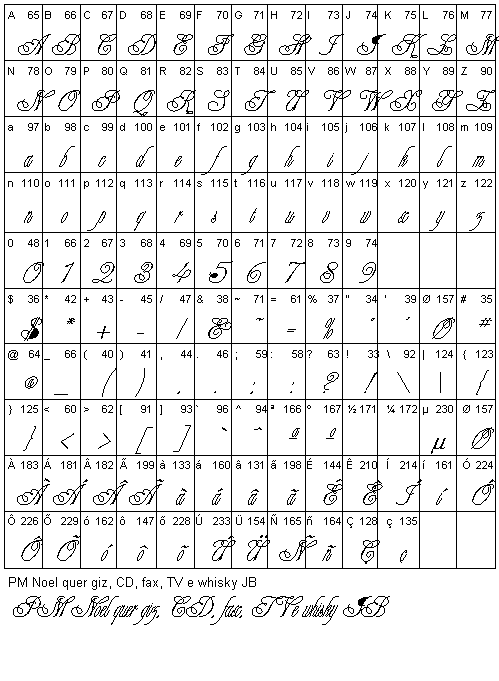 A 65 B 66 C 67 D 68 E 69 F 70 G 71 H 72 I 73 J 74 K 75 L 76 M 77
A B C D E F G H I J K L M
N 78 O 79 P 80 Q 81 R 82 S 83 T 84 U 85 V 86 W 87 X 88 Y 89 Z 90
N O P Q R S T U V W X Y Z
a 97 b 98 c 99 d 100 e 101 f 102 g 103 h 104 i 105 j 106 k 107 l 108 m 109
a b c d e f g h i j k l m
n 110 o 111 p 112 q 113 r 114 s 115 t 116 u 117 v 118 w 119 x 120 y 121 z 122
n o p q r s t u v w x y z
0 48 1 66 2 67 3 68 4 69 5 70 6 71 7 72 8 73 9 74
0 1 2 3 4 5 6 7 8 9
$ 36 * 42 + 43 - 45 / 47 & 38 ~ 71 = 61 % 37 " 34 ' 39 Ø 157 # 35
$ * + - / & ~ = % " ' Ø #
@ 64 _ 66 ( 40 ) 41 , 44 . 46 ; 59 : 58 ? 63 ! 33 \ 92 | 124 { 123
@ _ ( ) , . ; : ? ! \ | {
} 125 < 60 > 62 [ 91 ] 93 ` 96 ^ 94 ª 166 ° 167 ½ 171 ¼ 172 µ 230 Ø 157
} < > [ ] ` ^ ª º µ Ø
À 183 Á 181 Â 182 Ã 199 à 133 á 160 â 131 ã 198 É 144 Ê 210 Í 214 í 161 Ó 224
À Á Â Ã à á â ã É Ê Í í Ó
Ô 226 Õ 229 ó 162 ô 147 õ 228 Ú 233 Ü 154 Ñ 165 ñ 164 Ç 128 ç 135
Ô Õ ó ô õ Ú Ü Ñ ñ Ç ç
PM Noel quer giz, CD, fax, TV e whisky JB
PM Noel quer giz, CD, fax, TV e whisky JB